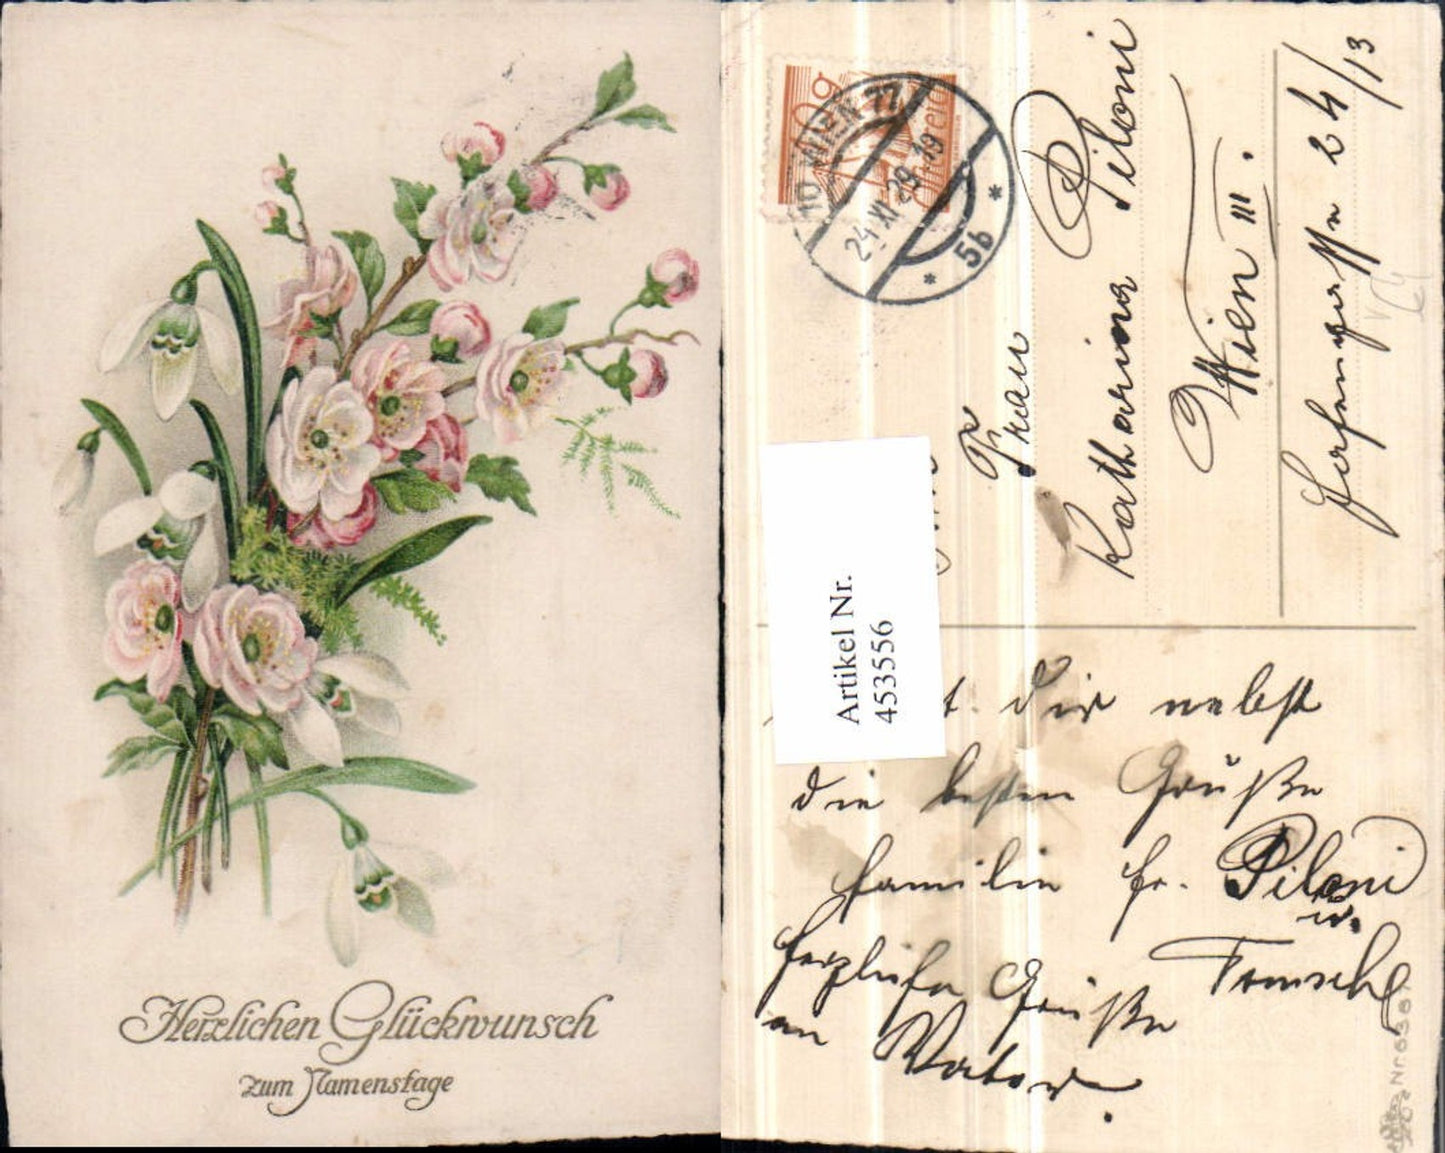 Herzlichen Glückwunsch
zum Namenstage
10 WIEN 77
24.XI.29.19
* 5b *
Frau
Katharina Piloni
Wien III.
24/13
Artikel Nr.
453556
dir nebst
die besten Grüße
Familie Fr. Piloni
u.
herzliche Grüße
an Vater.
Nr.